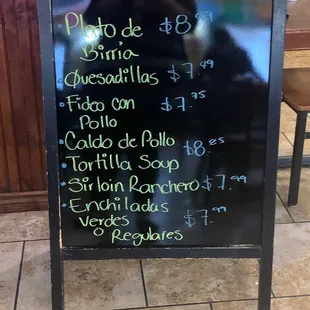 Plato de $8.99
Birria
Quesadillas $7.49
Fideo con $7.75
Pollo
Caldo de Pollo $8.25
Tortilla Soup
Sirloin Ranchero $7.99
Enchiladas
verdes $7.99
o Regulares